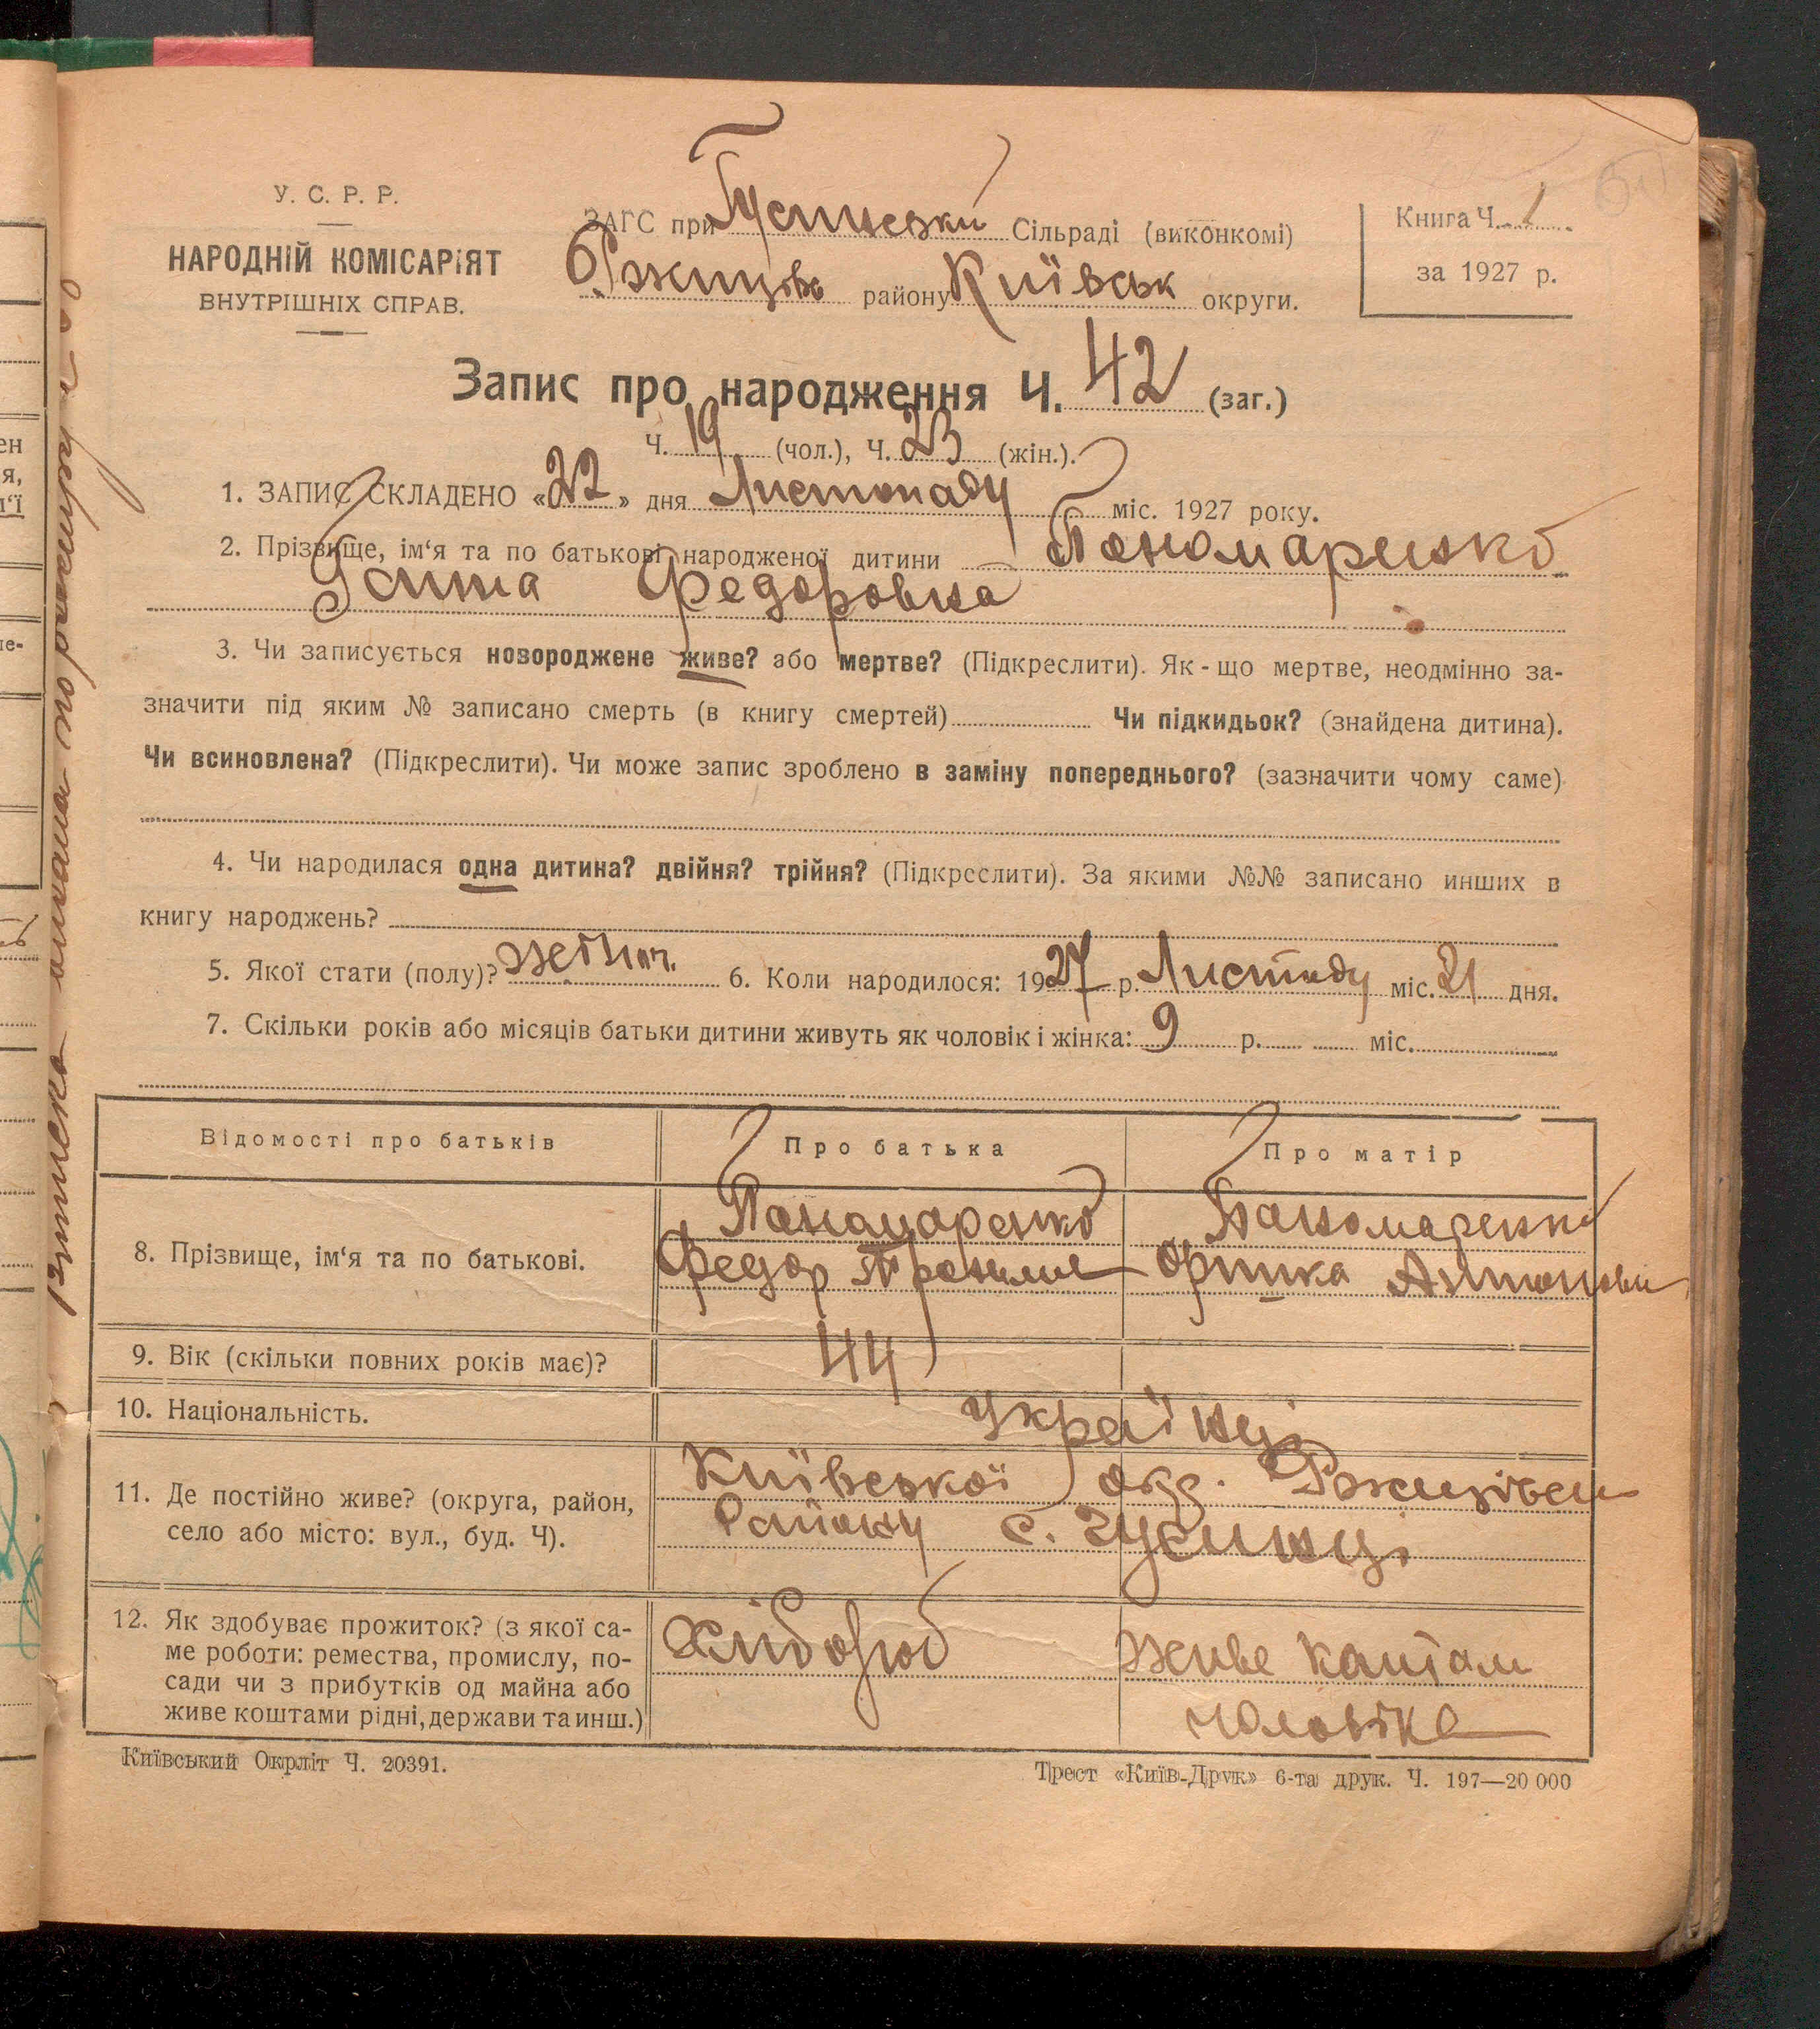 У. С. Р. Р.
НАРОДНІЙ КОМІСАРІЯТ
ВНУТРІШНІХ СПРАВ.
ЗАГС при Гусинський Сільраді (виконкомі)
Ржищів району Київськ округи.
Книга Ч. 1
за 1927 р.
Запис про народження Ч. 42 (заг.)
Ч. 19 (чол.), Ч. 23 (жін.).
1. ЗАПИС СКЛАДЕНО «22» дня Листопаду міс. 1927 року.
2. Прізвище, ім‘я та по батькові народженої дитини Пономаренко
Ганна Федоровна
3. Чи записується новороджене живе? або мертве? (Підкреслити). Як-що мертве, неодмінно за-
значити під яким № записано смерть (в книгу смертей) Чи підкидьок? (знайдена дитина).
Чи всиновлена? (Підкреслити). Чи може запис зроблено в заміну попереднього? (зазначити чому саме)
4. Чи народилася одна дитина? двійня? трійня? (Підкреслити). За якими №№ записано инших в
книгу народжень?
5. Якої стати (полу)? жіноч. 6. Коли народилося: 1927 р. Листпаду міс. 21 дня.
7. Скільки років або місяців батьки дитини живуть як чоловік і жінка: 9 р. міс.
Відомості про батьків Про батька Про матір
8. Прізвище, ім‘я та по батькові. Пономаренко Пономаренко
Федор Оришка Антонови
9. Вік (скільки повних років має)? 44
10. Національність. Українці
11. Де постійно живе? (округа, район,
село або місто: вул., буд. Ч).
Київської окр. Ржищівськ
Району с. Гусинці
12. Як здобуває прожиток? (з якої са-
ме роботи: ремества, промислу, по-
сади чи з прибутків од майна або
живе коштами рідні, держави та инш.)
Хлібороб
Живе коштам
чоловіка
Київський Окрліт Ч. 20391.
Трест «Київ-Друк» 6-та друк. Ч. 197—20 000